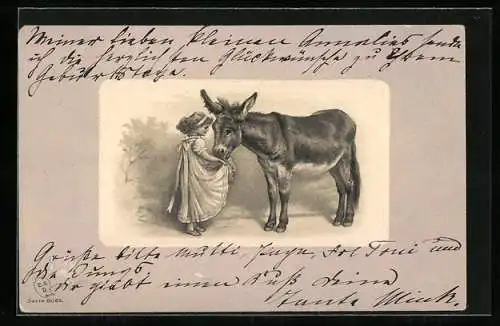 Meiner lieben kleinen Annalies sende
ich die herzlichsten Glückwünsche zu Ihrem
Geburtstage.
Grüße bitte Mutti, Frl Toni und
die Jungs
Dir giebt einen Kuß Deine
Tante Mink.
Serie 6082.